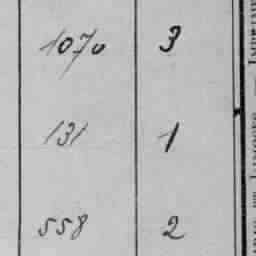 1070 3
131 1
558 2